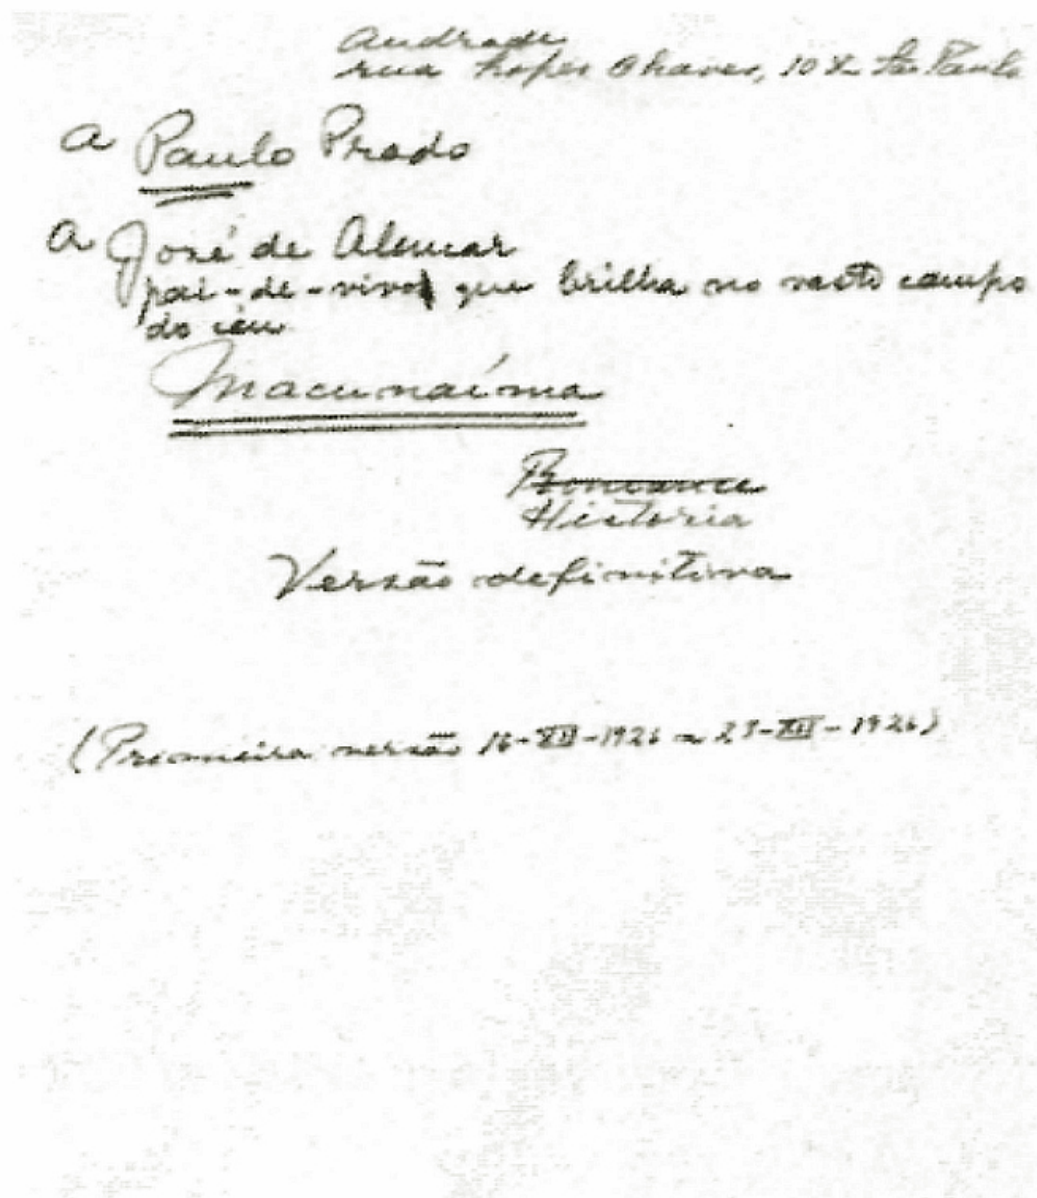 Andrade
rua Lopes Chaves, 108 São Paulo
A Paulo Prado
A José de Alencar
pai-de-vivo que brilha no vasto campo
do céu
Macunaíma
Romance
Historia
Versão definitiva
(Primeira versão 16-XII-1926 a 23-XII-1926)